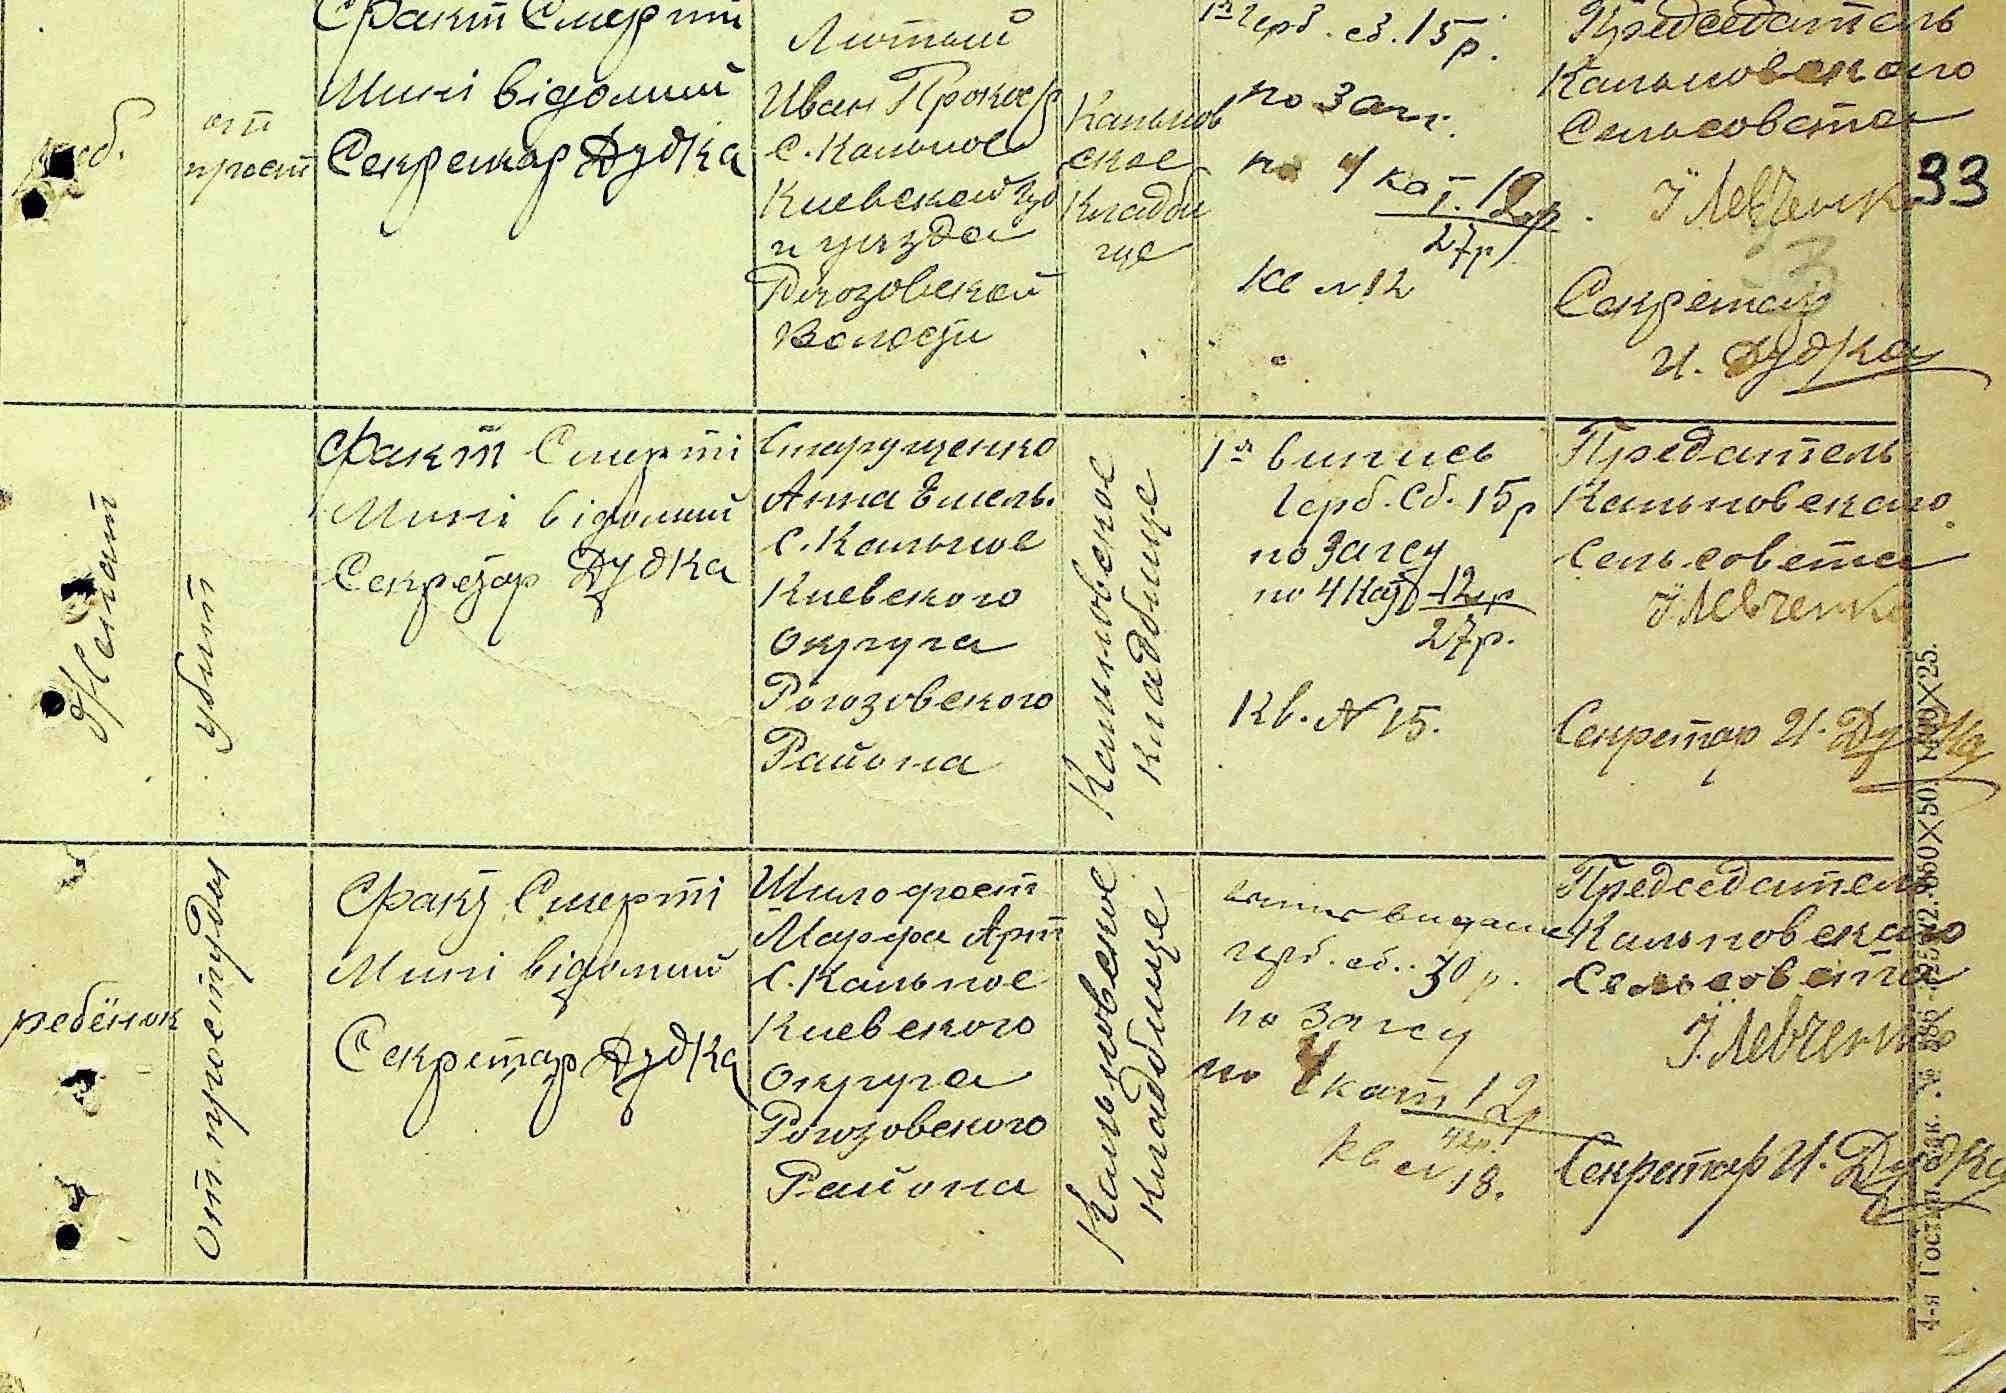 от
прост
Факт Смерті
Мині відомий
Секретар Дудка
Лютый
Иван Прокоф
с. Кальное
Киевской Губ
и уезда
Рогозовской
Волости
Кальнов
ское
Кладби
ще
1я герб. сб. 15 р.
по Заг.
по 4 кат. 12р.
27р
Кв №12
Председатель
Кальновского
Сельсовета
Ї Левченко
33
Секретар
И. Дудка
Женат
убит
Факт Смерті
Мині відомий
Секретар Дудка
Старущенко
Анна Емель.
с. Кальное
Киевского
округа
Рогозовского
Района
Кальновское
кладбище
1я випись
герб. сб. 15 р
по Загсу
по 4 кат 12р
27р.
Кв. № 15.
Предатель
Кальновского
Сельсовета
Ї Левченко
Секретар И. Дудка
ребёнок
от простуды
Факт Смерті
Мині відомий
Секретар Дудка
Шилофост
Марфа Арт
с. Кальное
Киевского
Округа
Рогозовского
Района
Кальновское
кладбище
герб. сб. 30 р.
по Загсу
по 4 кат 12р
42р.
Кв № 18.
Председатель
Кальновского
Сельсовета
Ї. Левченко
Секретар И. Дудка